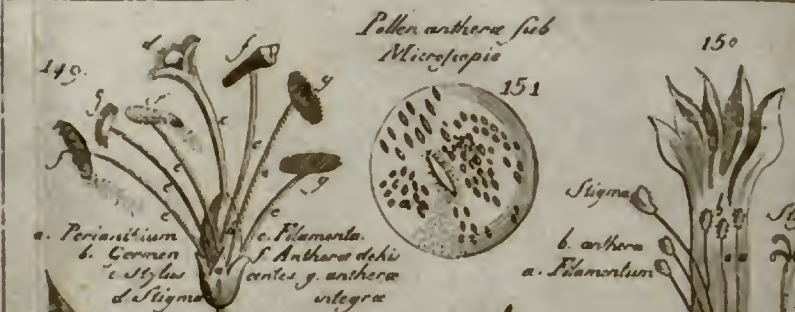 Pollen antheræ sub
Microscopio
149.
d
f
151
150
g
h
f
g
f
e
e
e
e
e
g
Stigma
a. Perianthium
b. Germen
c. Stylus
d. Stigma
e. Filamenta.
f. Antheræ dehis
centes, g. antheræ
integræ
b. anthera
a. Filamentum
b
a